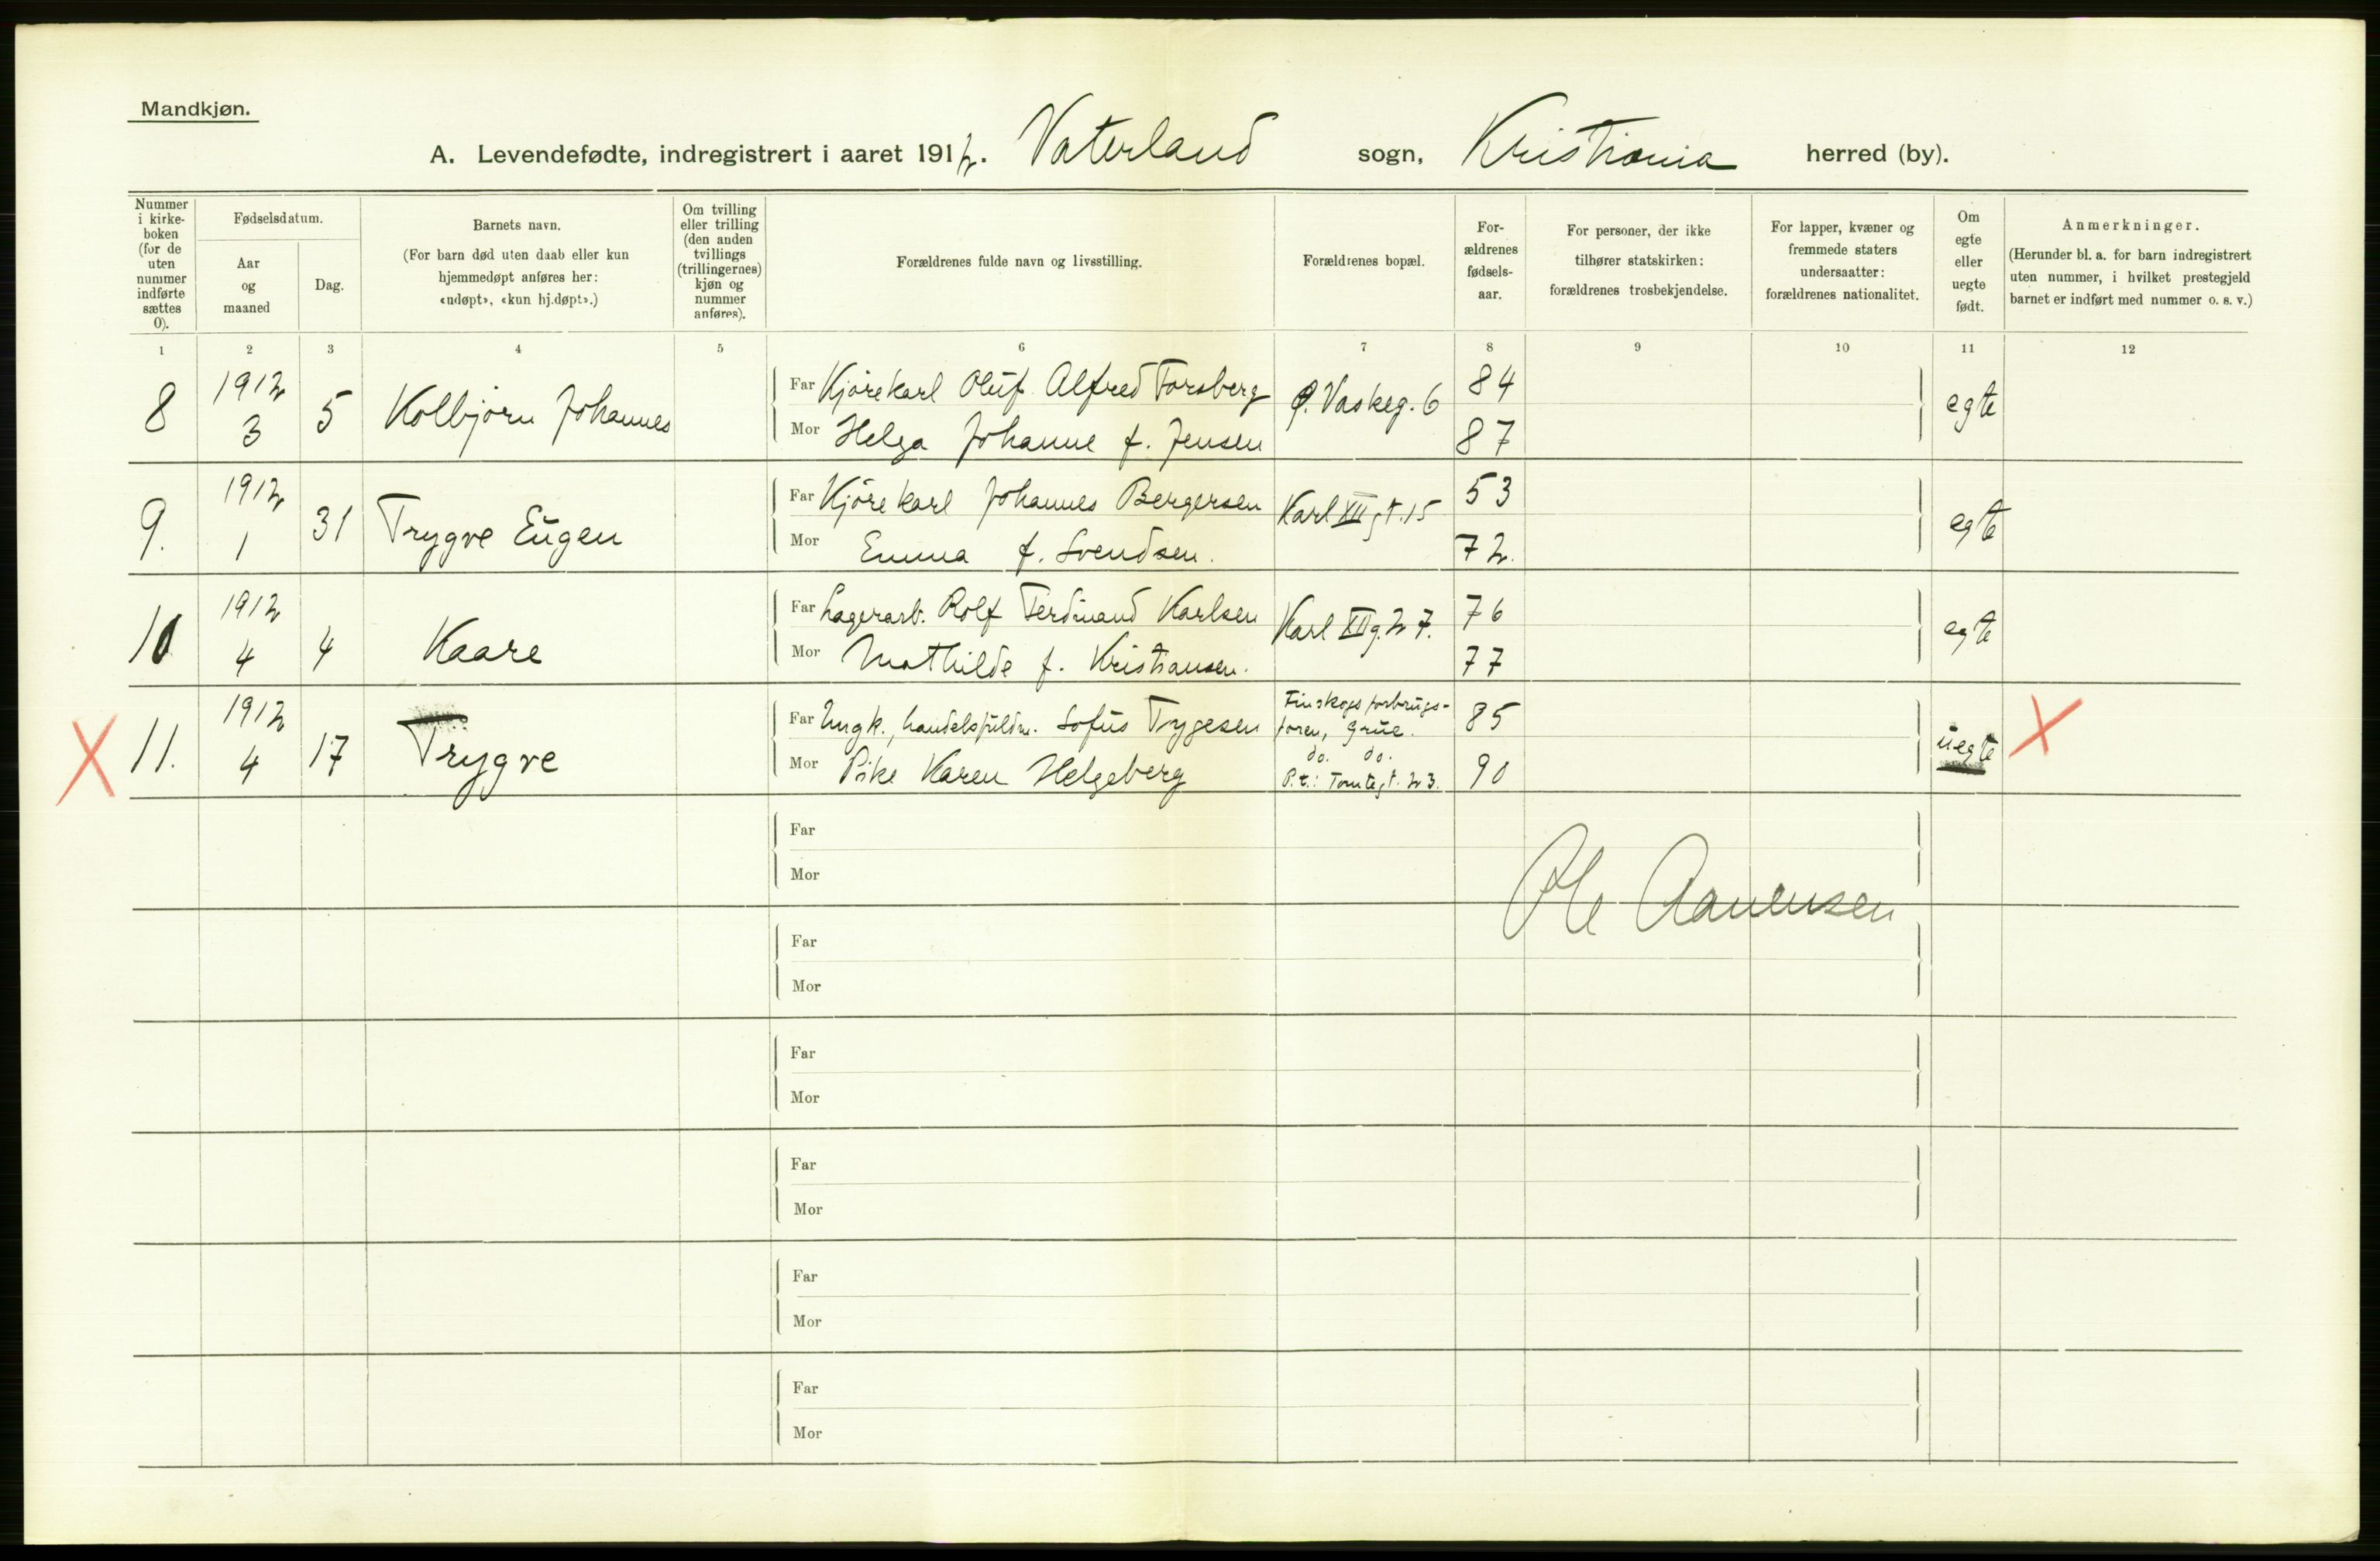 Mandkjøn.
A. Levendefødte, indregistrert i aaret 1912. Vaterland sogn, Kristiania herred (by).
Nummer
i kirke-
boken
(for de
uten
nummer
indførte
sættes
0).
Fødselsdatum.
Aar
og
maaned
Dag.
Barnets navn.
(For barn død uten daab eller kun
hjemmedøpt anføres her:
«udøpt», «kun hj.døpt».)
Om tvilling
eller trilling
(den anden
tvillings
(trillingernes)
kjøn og
nummer
anføres).
Forældrenes fulde navn og livsstilling.
Forældrenes bopæl.
For-
ældrenes
fødsels-
aar.
For personer, der ikke
tilhører statskirken:
forældrenes trosbekjendelse.
For lapper, kvæner og
fremmede staters
undersaatter:
forældrenes nationalitet.
Om
egte
eller
uegte
født.
Anmerkninger.
(Herunder bl. a. for barn indregistrert
uten nummer, i hvilket prestegjeld
barnet er indført med nummer o. s. v.)
1 2 3 4 5 6 7 8 9 10 11 12
8 1912 3 5 Kolbjørn Johannes
Far Kjørekarl Oluf Alfred Forsberg Ø. Vaskeg. 6 84 egte
Mor Helga Johanne f. Jensen 87
9. 1912 1 31 Trygve Eugen
Far Kjørekarl Johannes Bergersen Karl XII gt. 15 53 egte
Mor Emma f. Svendsen. 72.
10 1912 4 4 Kaare
Far Lagerarb. Rolf Ferdinand Karlsen Karl XII g. 27. 76 egte
Mor Mathilde f. Kristiansen. 77
X 11. 1912 4 17 Trygve
Far Ungk., handelsfuldm. Sofus Trygesen Finskogs forbrugs-
foren, Grue. 85 uegte X
Mor Pike Karen Helgeberg do. do.
P.t.: Tomtegt. 23. 90
Far
Mor
Ole Aanensen
Far
Mor
Far
Mor
Far
Mor
Far
Mor
Far
Mor